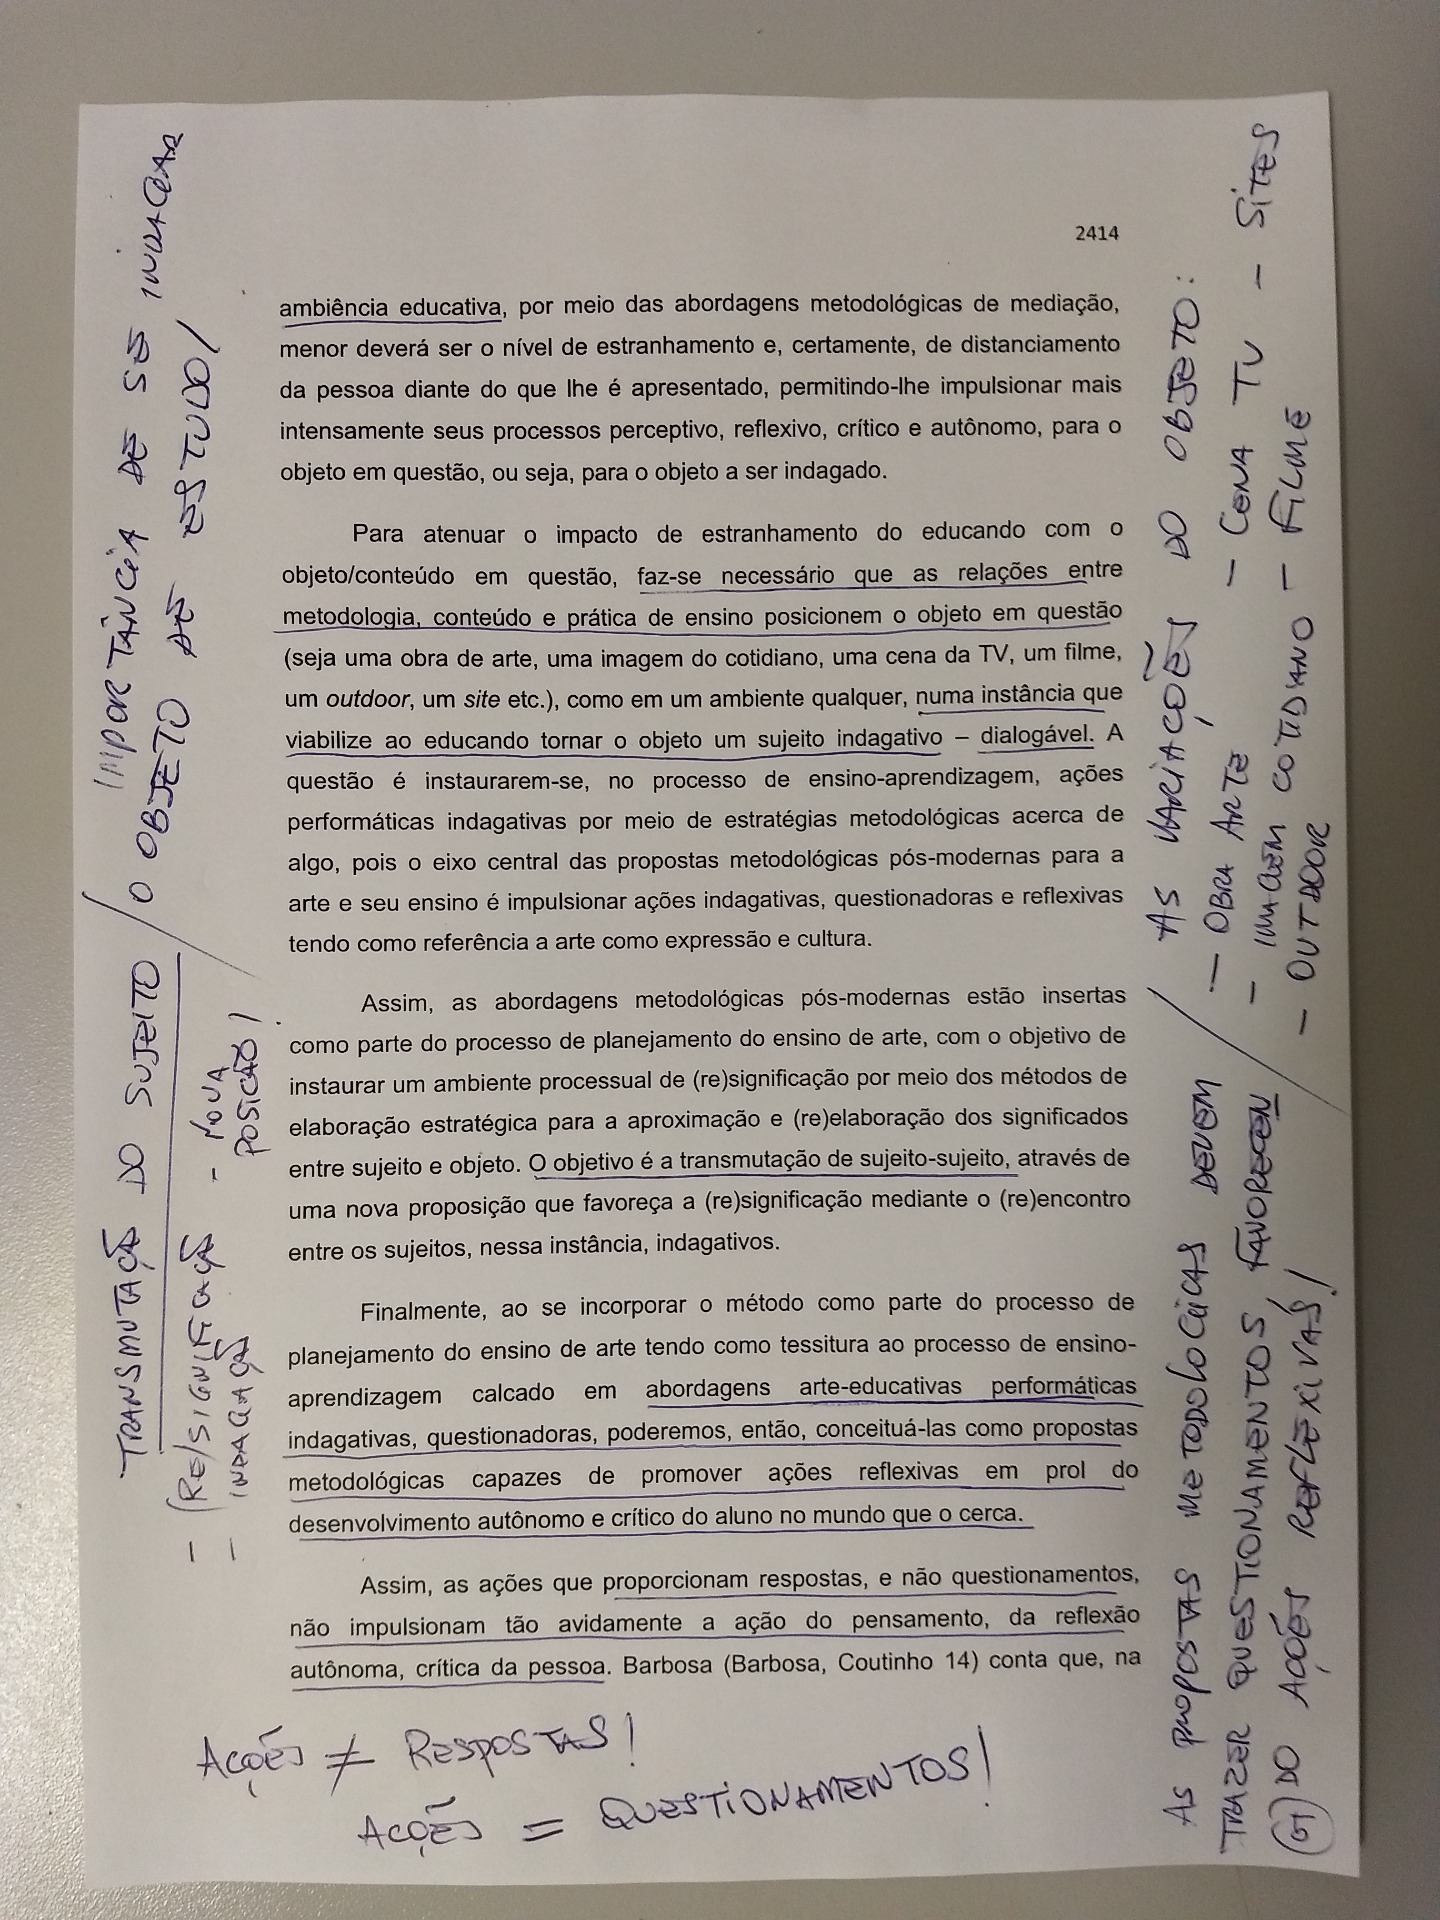 2414
ambiência educativa, por meio das abordagens metodológicas de mediação,
menor deverá ser o nível de estranhamento e, certamente, de distanciamento
da pessoa diante do que lhe é apresentado, permitindo-lhe impulsionar mais
intensamente seus processos perceptivo, reflexivo, crítico e autônomo, para o
objeto em questão, ou seja, para o objeto a ser indagado.
Para atenuar o impacto de estranhamento do educando com o
objeto/conteúdo em questão, faz-se necessário que as relações entre
metodologia, conteúdo e prática de ensino posicionem o objeto em questão
(seja uma obra de arte, uma imagem do cotidiano, uma cena da TV, um filme,
um outdoor, um site etc.), como em um ambiente qualquer, numa instância que
viabilize ao educando tornar o objeto um sujeito indagativo – dialogável. A
questão é instaurarem-se, no processo de ensino-aprendizagem, ações
performáticas indagativas por meio de estratégias metodológicas acerca de
algo, pois o eixo central das propostas metodológicas pós-modernas para a
arte e seu ensino é impulsionar ações indagativas, questionadoras e reflexivas
tendo como referência a arte como expressão e cultura.
Assim, as abordagens metodológicas pós-modernas estão insertas
como parte do processo de planejamento do ensino de arte, com o objetivo de
instaurar um ambiente processual de (re)significação por meio dos métodos de
elaboração estratégica para a aproximação e (re)elaboração dos significados
entre sujeito e objeto. O objetivo é a transmutação de sujeito-sujeito, através de
uma nova proposição que favoreça a (re)significação mediante o (re)encontro
entre os sujeitos, nessa instância, indagativos.
Finalmente, ao se incorporar o método como parte do processo de
planejamento do ensino de arte tendo como tessitura ao processo de ensino-
aprendizagem calcado em abordagens arte-educativas performáticas
indagativas, questionadoras, poderemos, então, conceituá-las como propostas
metodológicas capazes de promover ações reflexivas em prol do
desenvolvimento autônomo e crítico do aluno no mundo que o cerca.
Assim, as ações que proporcionam respostas, e não questionamentos,
não impulsionam tão avidamente a ação do pensamento, da reflexão
autônoma, crítica da pessoa. Barbosa (Barbosa, Coutinho 14) conta que, na
AÇÕES ≠ RESPOSTAS!
AÇÕES = QUESTIONAMENTOS!
TRANSMUTAÇÃO DO SUJEITO
- (RE)SIGNIFICAÇÃO - NOVA
POSIÇÃO!
- INDAGAÇÃO
IMPORTÂNCIA DE SE INDAGAR
O OBJETO DE ESTUDO/
AS PROPOSTAS METODOLÓGICAS DEVEM
TRAZER QUESTIONAMENTOS, FAVORECEN
DO AÇÕES REFLEXIVAS!
AS VARIAÇÕES DO OBJETO:
- OBRA ARTE - CENA TV - SITES
- IMAGEM COTIDIANO - FILME
- OUTDOOR